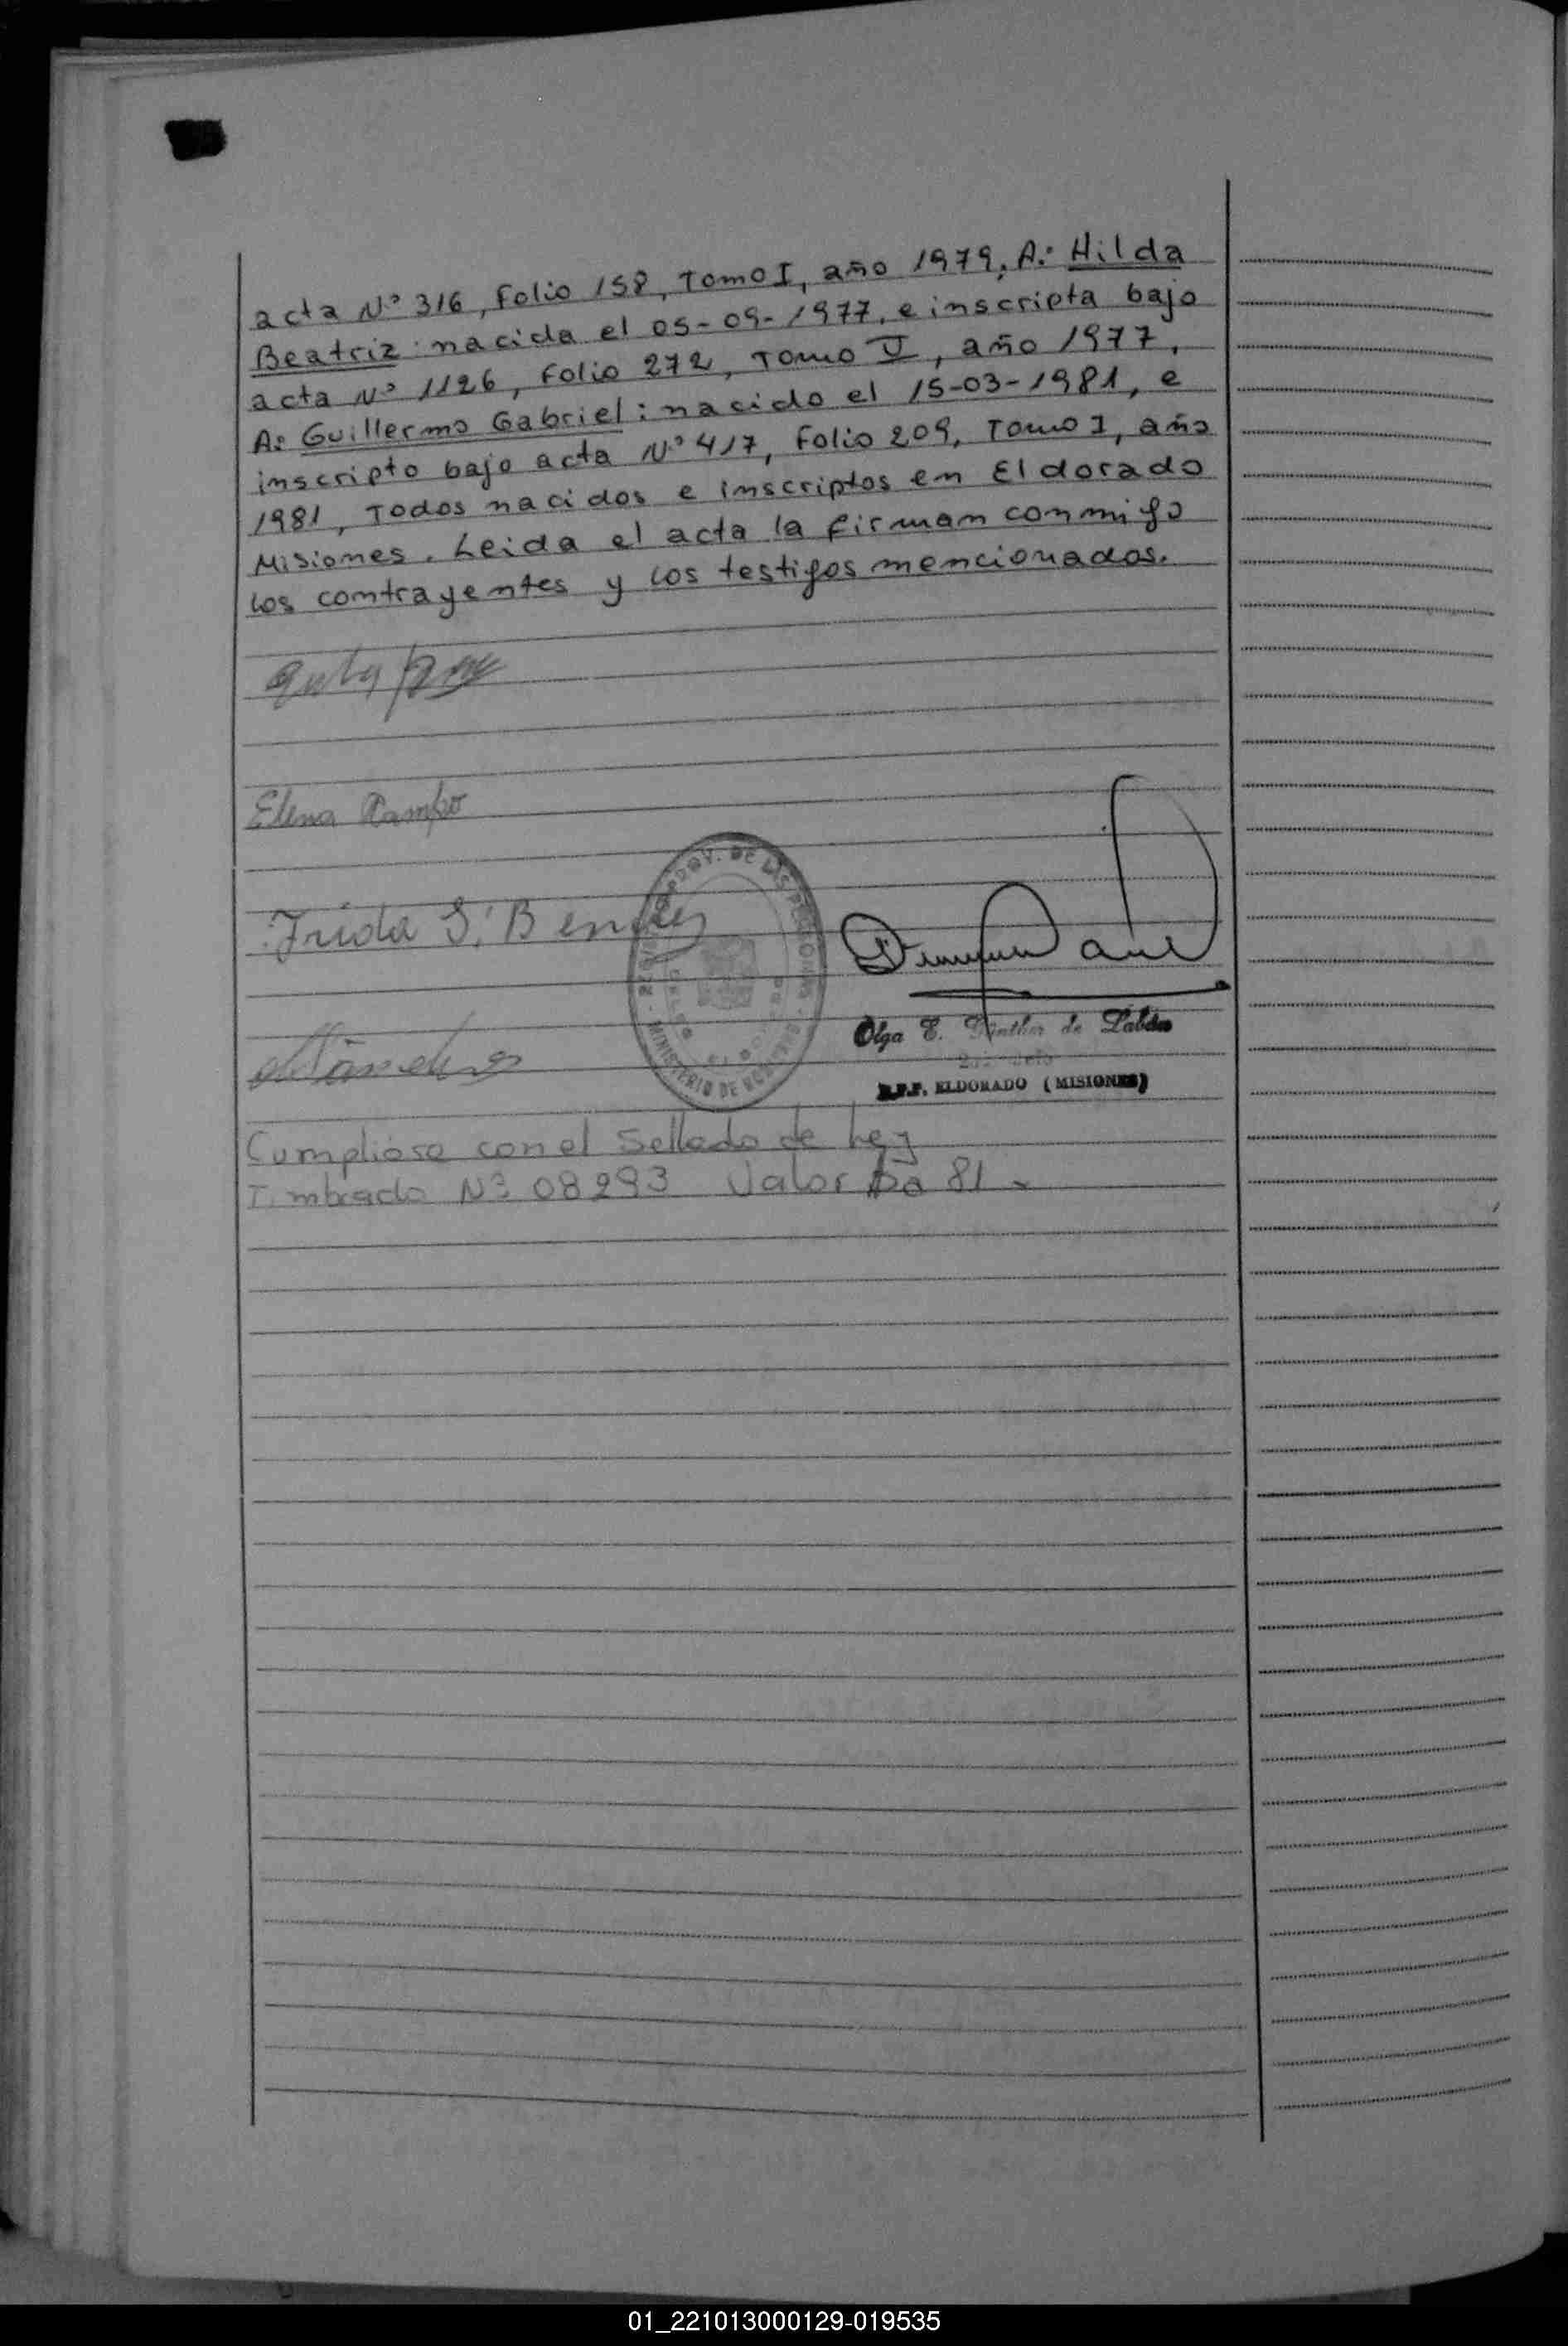 acta Nº 316, Folio 158, Tomo I, año 1979; A: Hilda
Beatriz: nacida el 05-09-1977, e inscripta bajo
acta Nº 1126, Folio 272, Tomo V, año 1977,
A: Guillermo Gabriel: nacido el 15-03-1981, e
inscripto bajo acta Nº 417, Folio 209, Tomo I, año
1981, Todos nacidos e inscriptos en Eldorado
Misiones. Leida el acta la firman conmigo
los contrayentes y los testigos mencionados.
Elena Rampo
Frida S. B
PROV. DE LAS PERSONAS
MINISTERIO DE
Olga E. Günther de
R.P.P. ELDORADO (MISIONES)
Cumpliose con el Sellado de Ley
Timbrado Nº 08293 Valor 81
01_221013000129-019535